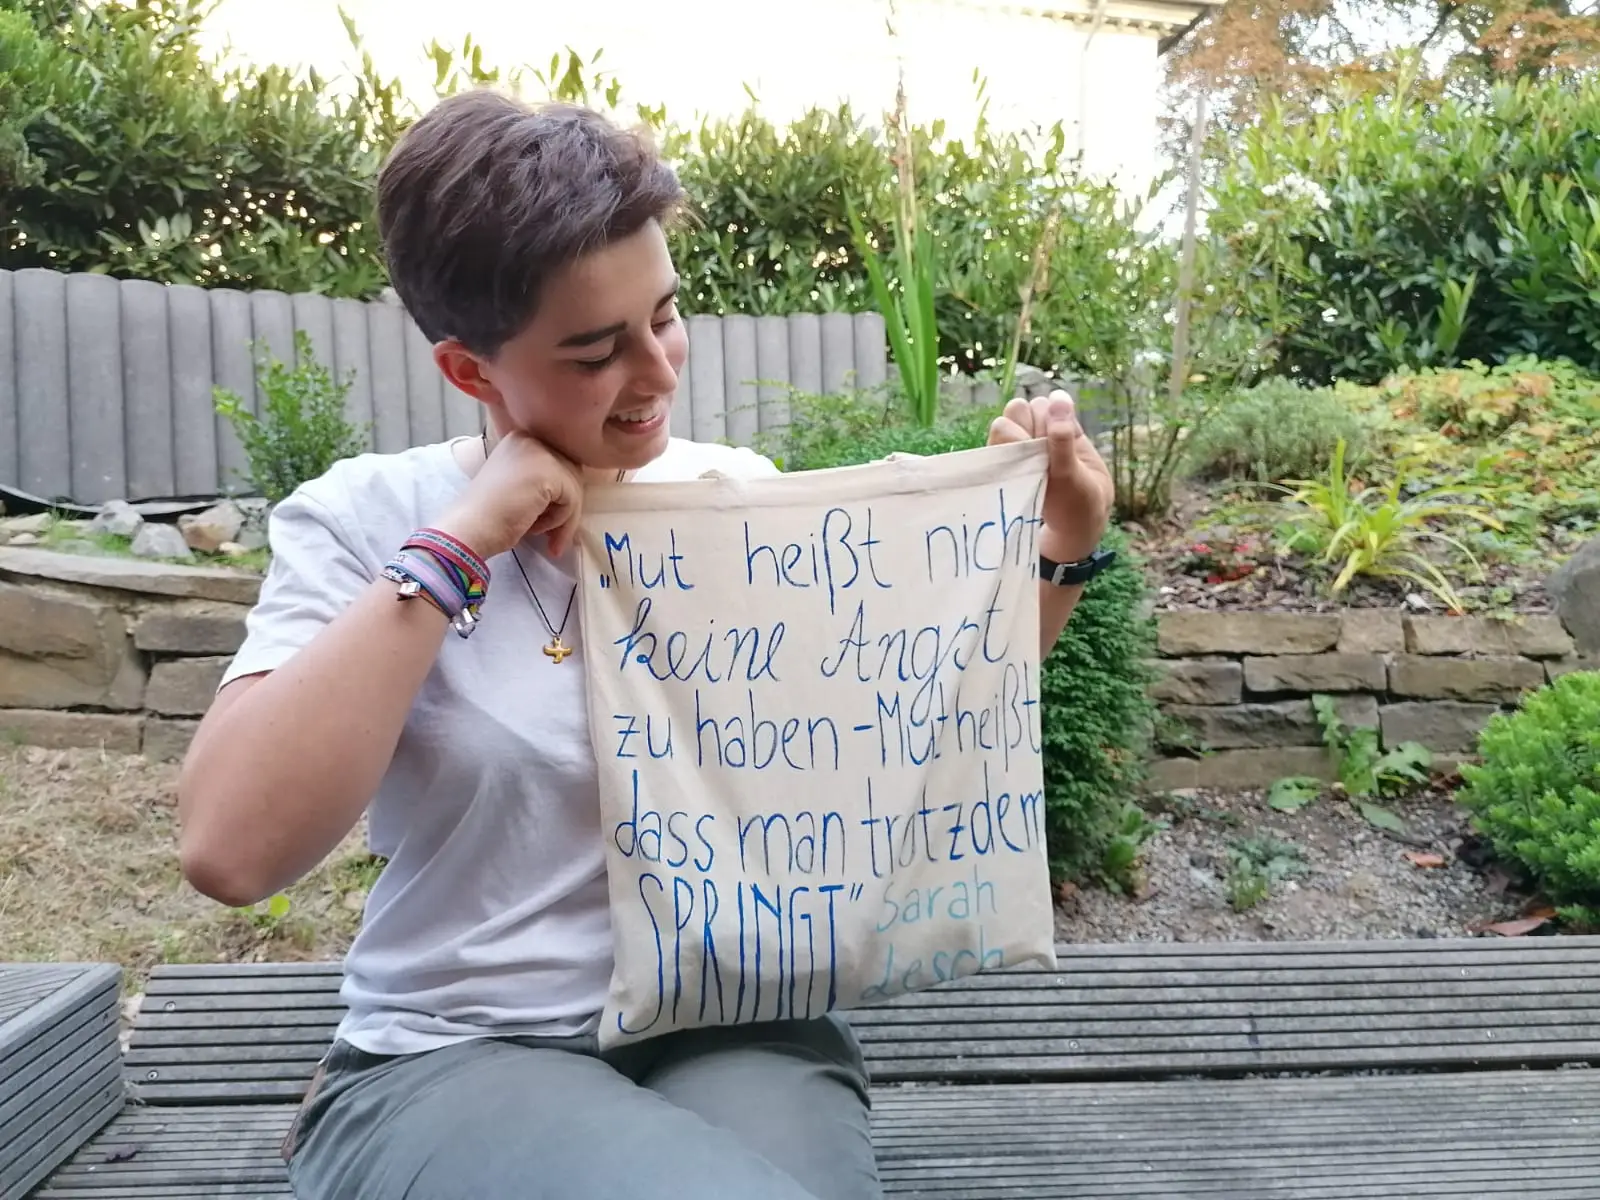 „Mut heißt nicht,
keine Angst
zu haben - Mut heißt
dass man trotzdem
SPRINGT“ Sarah
Lesch